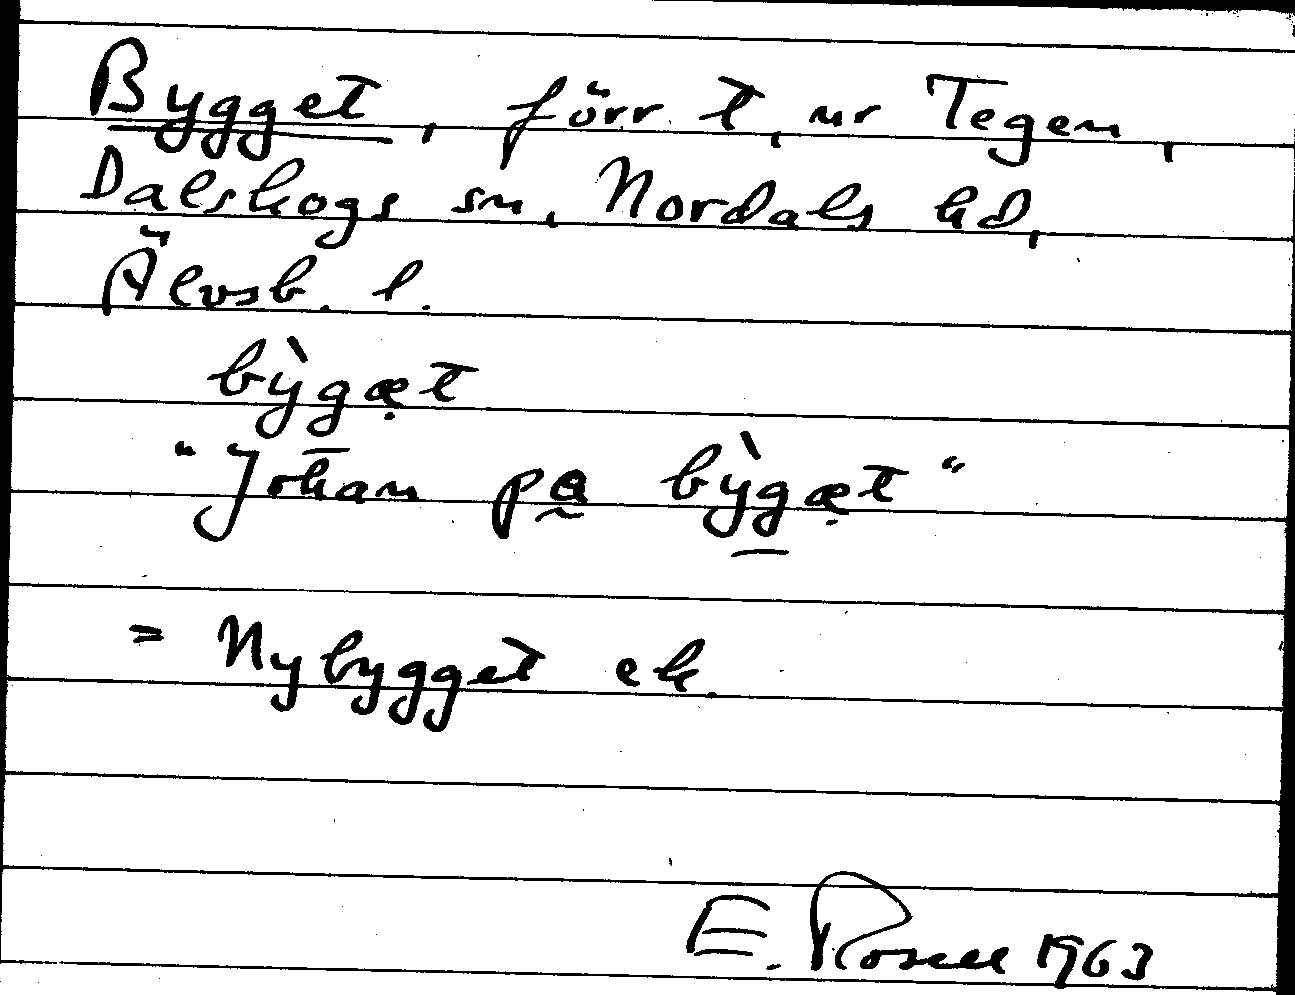 Bygget, förr t, nr Tegen,
Dalskogs sn, Nordals hd,
Älvsb. l.
bỳgæ̣t
"Johan pa̰ bỳgæ̣t"
= Nybygget ek.
E. Rosell 1963